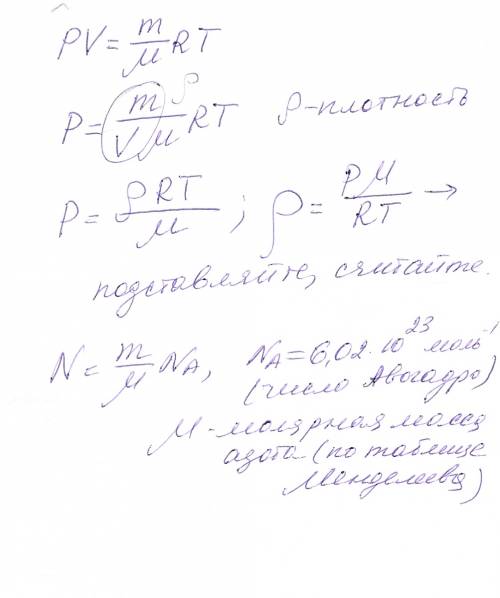 PV = m/M RT
P = m/VM ρ RT ρ-плотность
P = ρRT/M ; ρ = PM/RT →
подставляйте, считайте.
N = m/M NA, NA = 6,02·10²³ моль⁻¹
(число Авогадро)
M-молярная масса
азота (по таблице
Менделеева)